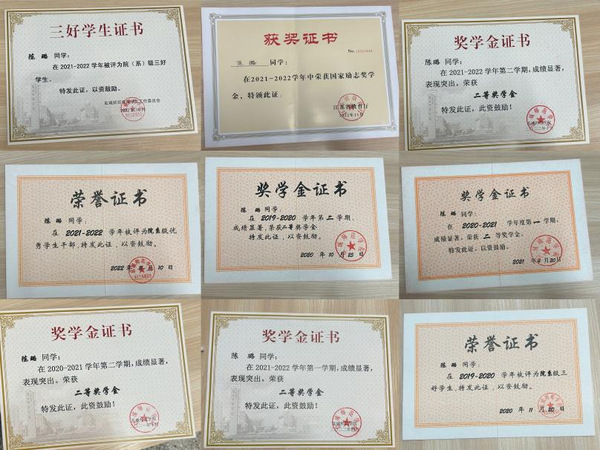 三好学生证书
陈璐 同学:
在2021-2022学年被评为院(系)级三好
学生。
特发此证,以资鼓励。
获奖证书
No.
陈璐 同学:
在2021-2022学年中荣获国家励志奖学
金,特颁此证。
奖学金证书
陈璐 同学:
在2021-2022学年第二学期,成绩显著,
表现突出,荣获
二等奖学金
特发此证,此资鼓励!
荣誉证书
陈璐 同学:
在 2021-2022 学年被评为院系级优
秀学生干部,特发此证,以资鼓励。
2022 年 10 月 10 日
奖学金证书
陈璐 同学:
在 2019-2020 学年第二学期,
成绩显著,荣获二等奖学金
特发此证,以资鼓励。
2020 年 10 月 25 日
奖学金证书
陈璐 同学:
在 2020-2021 学年度第一学期,
成绩显著,荣获二等奖学金。
特发此证,以资鼓励。
2021 年 月 20 日
奖学金证书
陈璐 同学:
在2020-2021学年第二学期,成绩显著,
表现突出,荣获
二等奖学金
特发此证,此资鼓励!
奖学金证书
陈璐 同学:
在2021-2022学年第一学期,成绩显著,
表现突出,荣获
二等奖学金
特发此证,此资鼓励!
荣誉证书
陈璐 同学:
在 2019-2020 学年被评为院系级三
好学生,特发此证,以资鼓励。
2020 年 11 月 20 日